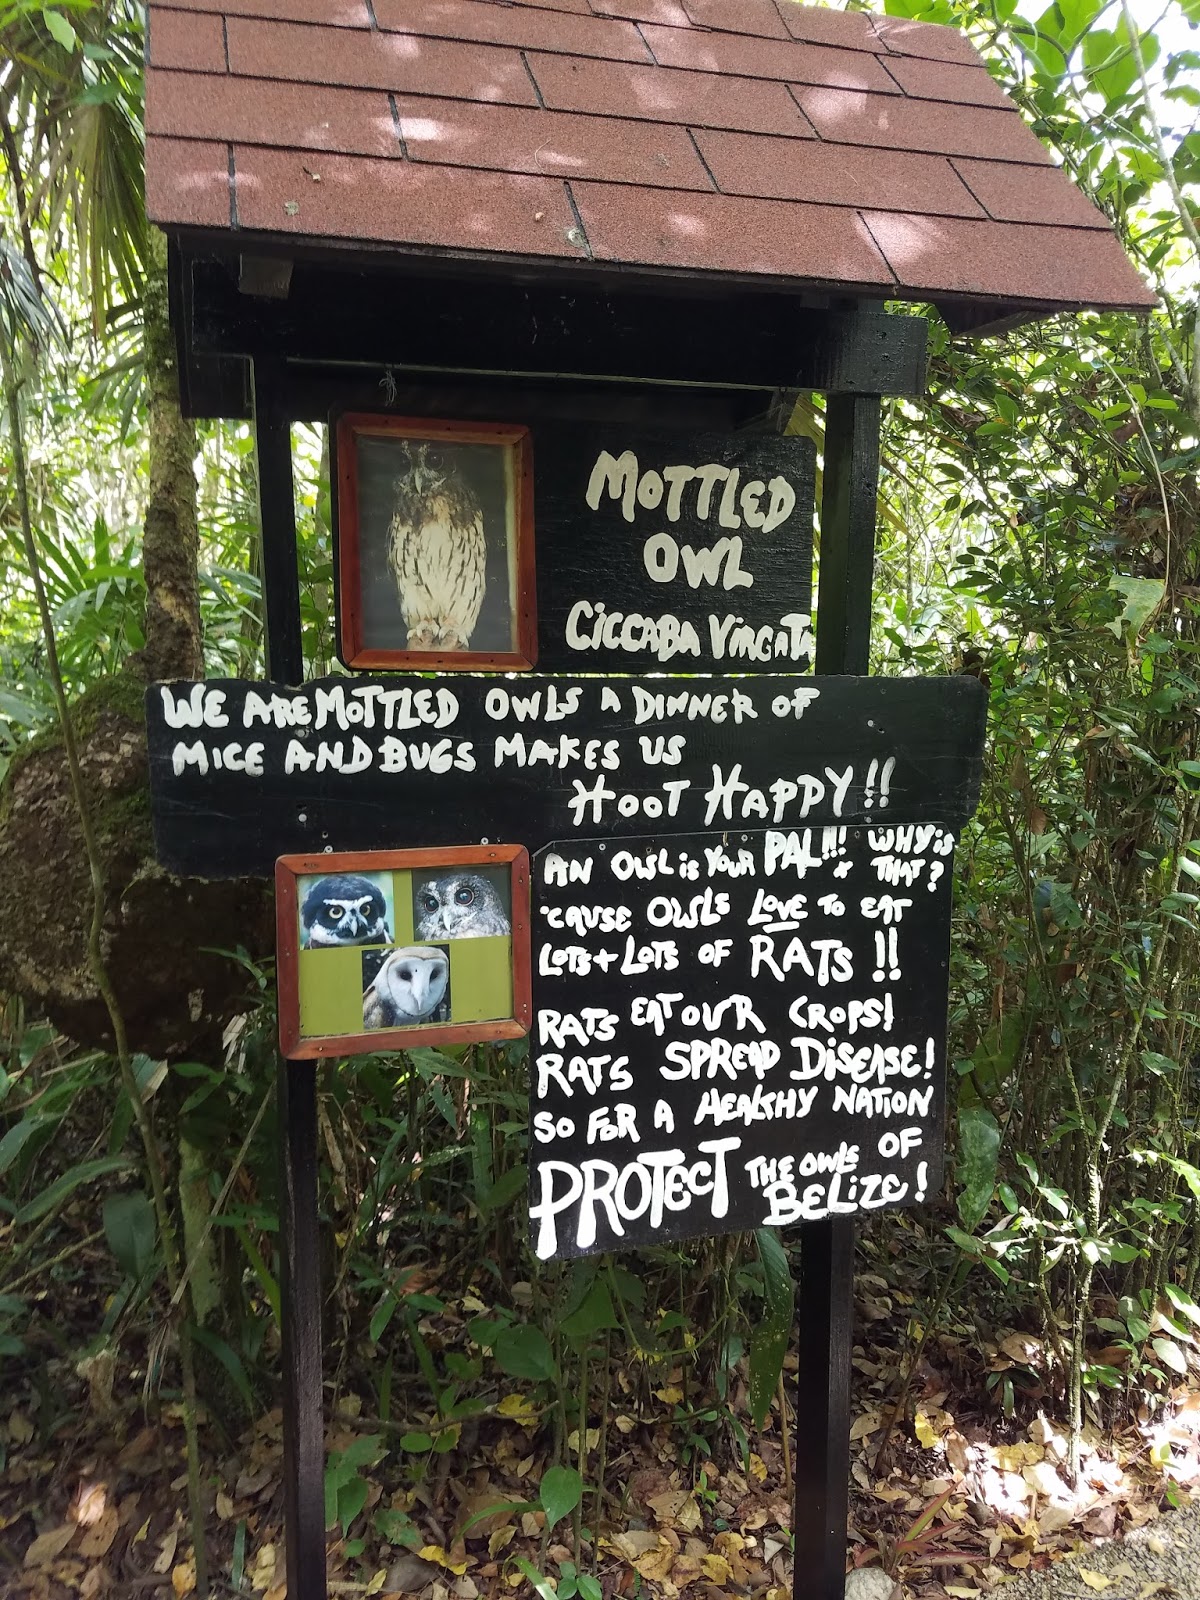 MOTTLED
OWL
CICCABA VIRGATA
WE ARE MOTTLED OWLS A DINNER OF
MICE AND BUGS MAKES US
HOOT HAPPY!!
AN OWL iS YOUR PAL!!! WHY iS
THAT?
'CAUSE OWLS LOVE TO EAT
LOTS + LOTS OF RATS !!
RATS EAT OUR CROPS!
RATS SPREAD DiSEASE!
SO FOR A HEALTHY NATION
PROTECT THE OWLS OF
BELiZE!